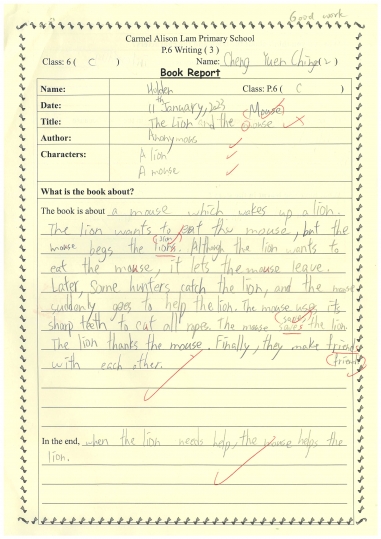 Good work
Carmel Alison Lam Primary School
P.6 Writing ( 3 )
Class: 6 ( C ) Name: Cheng Yuen Ching(2)
Book Report
Name: Holden Class: P.6 ( C )
Date: 11th January, 2023
Title: The Lion and the mouse (Mouse)
Author: Anonymous
Characters: A lion
A mouse
What is the book about?
The book is about a mouse which wakes up a lion.
The lion wants to eat this mouse, but the
mouse begs the lions. Although the lion wants to
eat the mouse, it lets the mouse leave.
Later, some hunters catch the lion, and the mouse
suddenly goes to help the lion. The mouse use its
sharp teeth to cut all ropes. The mouse saves the lion.
The lion thanks the mouse. Finally, they make friends
with each other.
In the end, when the lion needs help, the mouse helps the
lion.